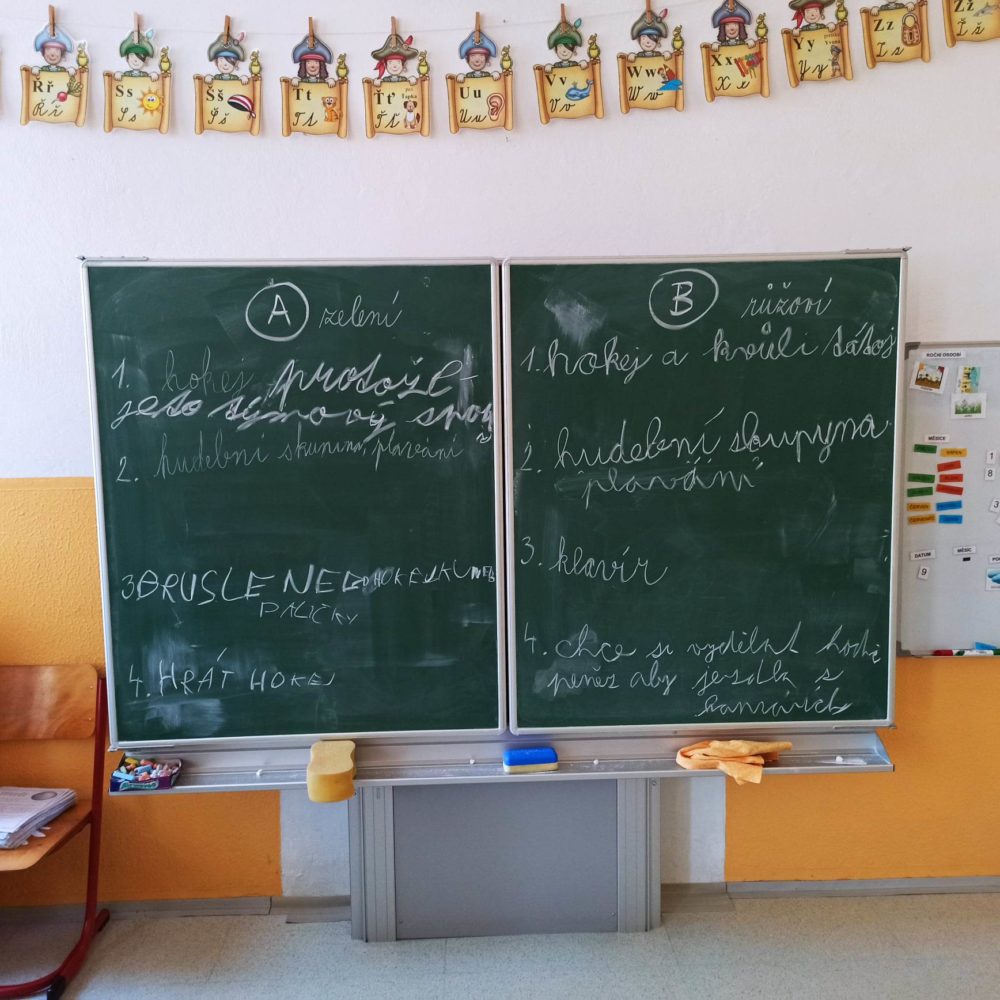 Řř
Ř ř
Ss
S s
Šš
Š š
Tt
T t
Ťť
Ť ť
Uu
U u
Vv
V v
Ww
W w
Xx
X x
Yy
Y y
Zz
Z z
Žž
Ž ž
A zelení
1. hokej, protože
je to týmový
2. hudební skupina, plavání
3. BRUSLE NEBO HOKEJKU NEBO
PALIČKY
4. HRÁT HOKEJ
B růžoví
1. hokej a kvůli tátoj
2. hudební skupyna
plavání
3. klavír
4. chce si vydělat hodně
peněz aby jezdila s
ROČNÍ OBDOBÍ
MĚSÍCE
SRPEN
ČERVEN
ČERVENEC
1
8
3
DATUM
MĚSÍC
9